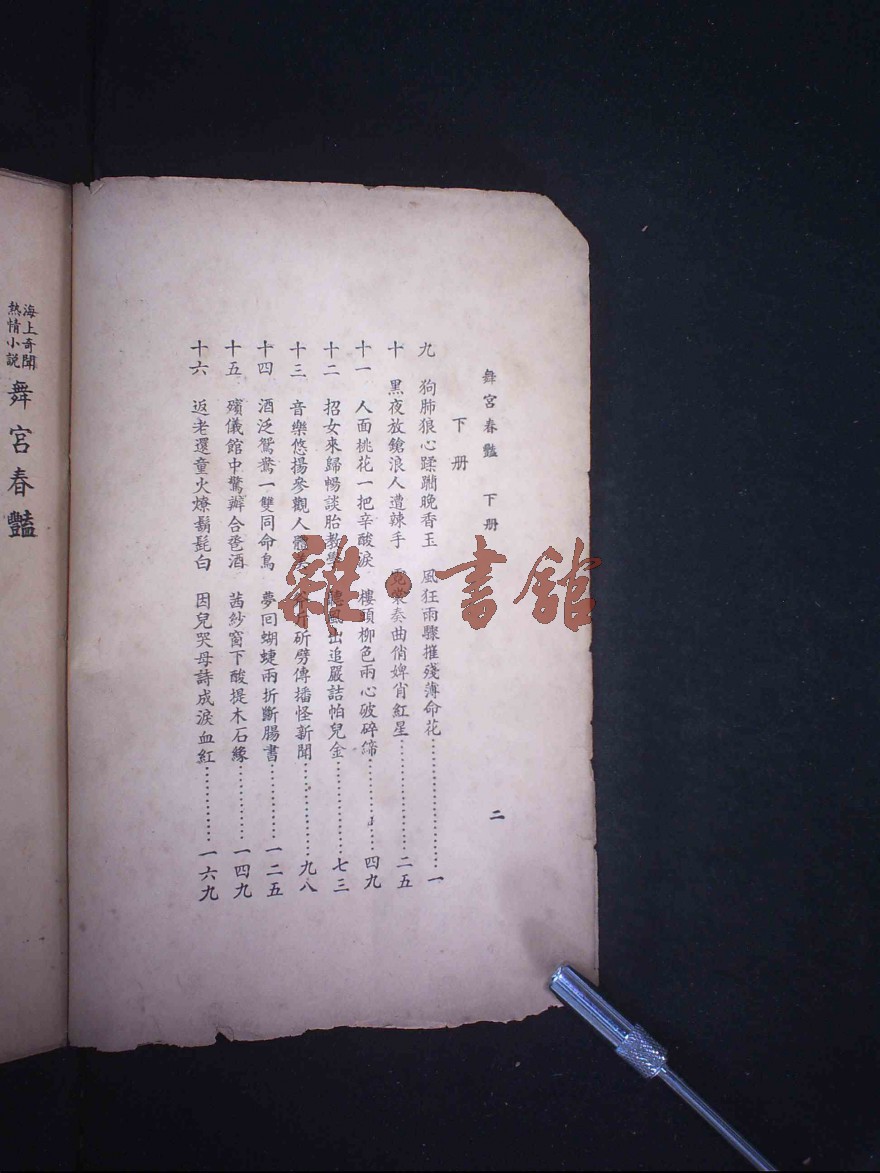 舞宮春豔 下册 二
下册
九 狗肺狼心蹂躝晚香玉 風狂雨驟摧殘薄命花 一
十 黑夜放鎗浪人遭辣手 霓裳奏曲俏婢肖紅星 二五
十一 人面桃花一把辛酸淚 樓頭柳色兩心破碎締 四九
十二 招女來歸暢談胎教學 出追嚴詰帕兒金 七三
十三 音樂悠揚參觀人體美 斫劈傳播怪新聞 九八
十四 酒泛鴛鴦一雙同命鳥 夢回蝴蜨兩折斷腸書 一二五
十五 殯儀館中驚辦合卺酒 茜紗窗下酸提木石緣 一四九
十六 返老還童火燎鬍髭白 因兒哭母詩成淚血紅 一六九
海上奇聞
熱情小説
舞宮春豔
雜·書館